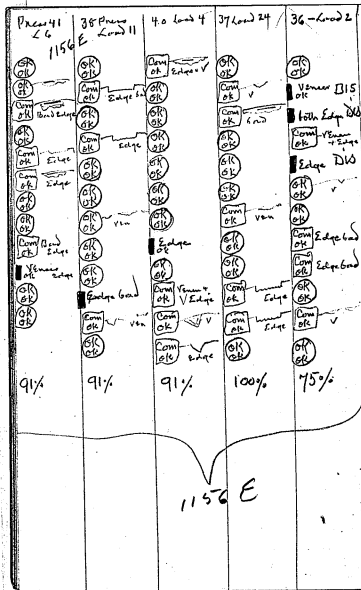 Press 41
L6
1156 E
OK OK
OK OK
Com OK Bond Edge
OK OK
Com OK Edge
Com OK Edge
OK OK
OK OK
Com OK Bond Edge
Veneer OK Edge
OK OK
OK OK
91%
38 Press
Load 11
OK OK
Com OK Edge bond
OK OK
Com OK Edge
OK OK
OK OK
OK OK
OK OK ven
OK OK
OK OK
Edge bond
Com OK ven
OK OK
91%
40 Load 4
Com OK Edge + V
OK OK
OK OK
OK OK
OK OK
OK OK
OK OK
OK OK
Edge OK
OK OK
Com OK Ven + V Edge
Com OK V
Com OK Edge
91%
37 Load 24
OK OK
Com OK V
Com OK Bond
OK OK
OK OK
OK OK
Com OK Ven
OK OK
OK OK
Com OK Edge
Com OK Edge
OK OK
100%
36 - Load 2
OK OK
Veneer OK
both Edge
Com OK Veneer + Edge
Edge
OK OK V
OK OK
Com OK Edge bond
Com OK Edge bond
OK OK
Com OK V
OK OK
75%
1156 E